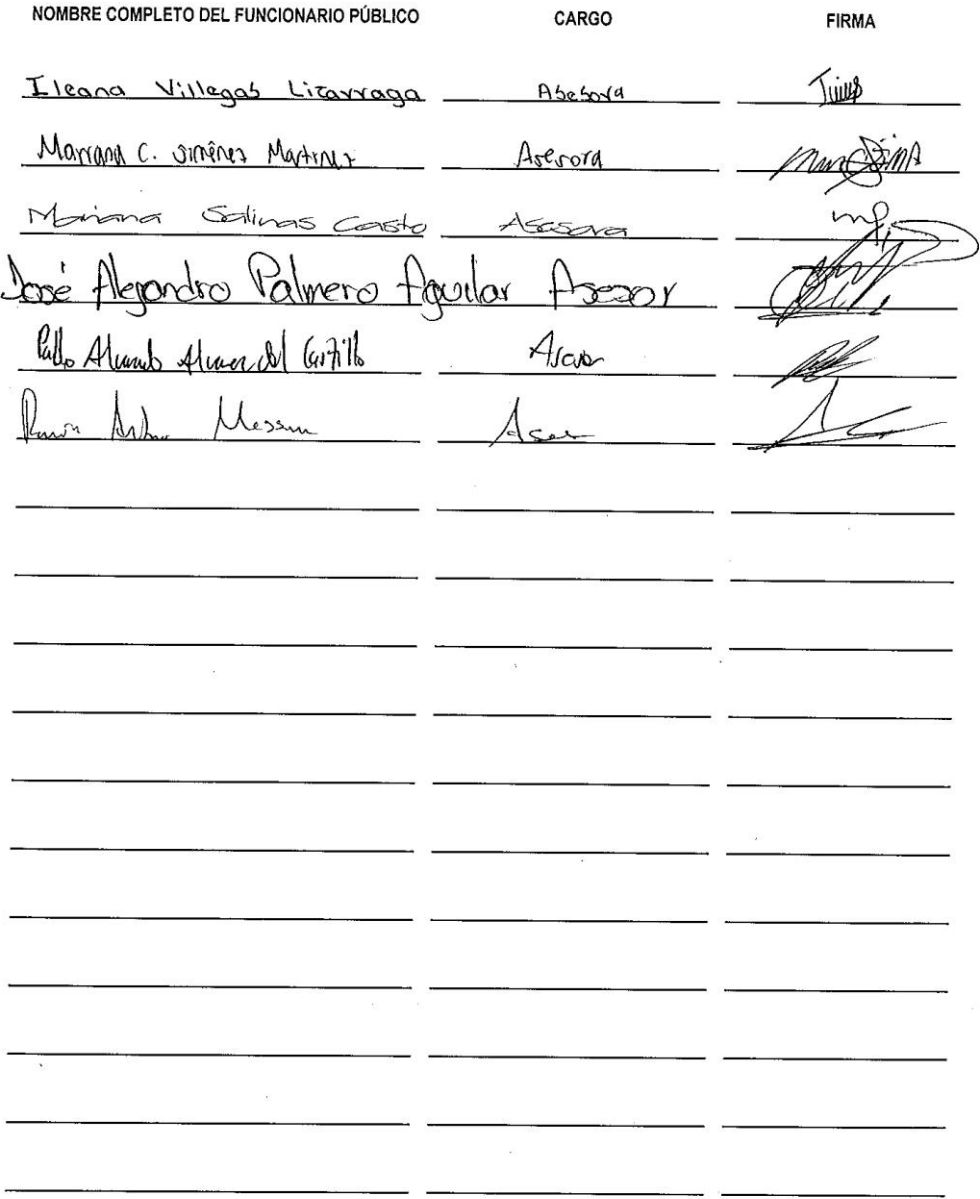 NOMBRE COMPLETO DEL FUNCIONARIO PÚBLICO CARGO FIRMA
Ileana Villegas Lizarraga Asesora
Mariana C. Jiménez Martínez Asesora
Mariana Salinas Casto Asesora
José Alejandro Palmero Aguilar Asesor
Pablo del Castillo Asesor
Ramón Asesor